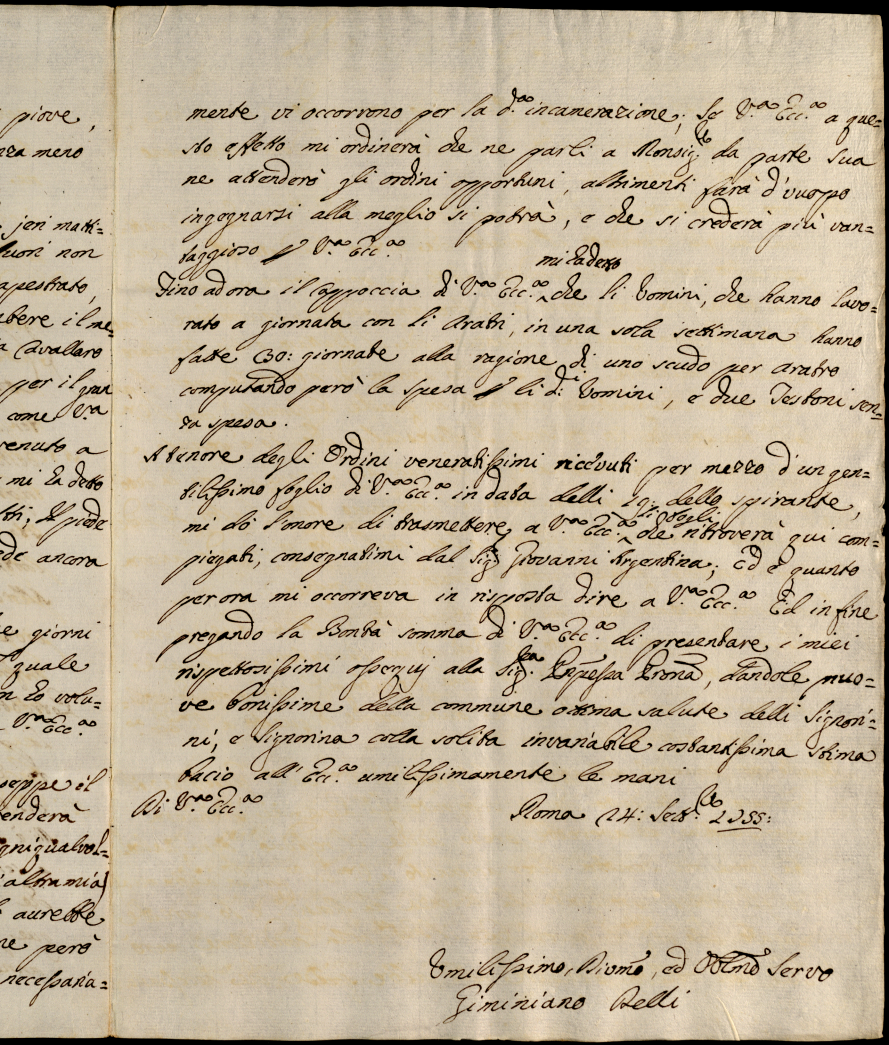 piove,
nza meno
jeri matti=
fuori non
apestrato,
abere il me=
a Cavallaro
per il gran
come V.ra
venuto a
mi ha detto
piede
ede ancora
e giorni
quale
n ho volu=
V.ra Ecc.za
seppe il
enderà
gniqualvol=
altra mia)
aurebbe
ne però
necessaria=
mente vi occorrono per la d.a incamerazione; Se V.ra Ecc.za a que=
sto effetto mi ordinerà che ne parli a Monsig.re da parte sua
ne attenderò gli ordini opportuni, altrimenti farà d'vuopo
ingegnarsi alla meglio si potrà, e che si crederà più van=
taggioso p V.ra Ecc.za
mi ha detto
Fino ad ora il Cappoccia di V.ra Ecc.za che li Vomini, che hanno lavo=
rato a giornata con li Aratri, in una sola settimana hanno
fatte 130: giornate alla ragione di uno scudo per aratro
computando però la spesa p li d.i Vomini, e due Testoni sen=
za spesa.
A tenore degli Ordini veneratissimi ricevuti per mezzo d'un gen=
tilissimo foglio di V.ra Ecc.za in data delli 19: dello spirante,
fogli
mi dò l'onore di trasmettere a V.ra Ecc.za che ritroverà qui com=
piegati, consegnatimi dal Sig.r Giovanni Argentina; Ed è quanto
per ora mi occorreva in risposta dire a V.ra Ecc.za Ed in fine
pregando la Bontà somma di V.ra Ecc.za di presentare i miei
rispettosissimi ossequj alla Sig.ra Prñpessa Prona, dandole nuo=
ve bonissime della commune ottima salute delli Signori=
ni, e Signorina colla solita invariabile costantissima stima
bacio all' Ecc.za umilissimamente le mani
Di V.ra Ecc.za
Roma 24: Sett.re 1755:
Vmilissimo, Divmo, ed Obblmo Servo
Giminiano Belli